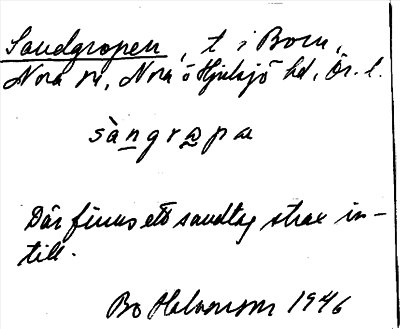 Sandgropen, t i Born,
Nora sn, Nora o Hjulsjö hd, Ör. l.
sàngrɷpa
Där finns ett sandtag strax in-
till.
Bo 1946